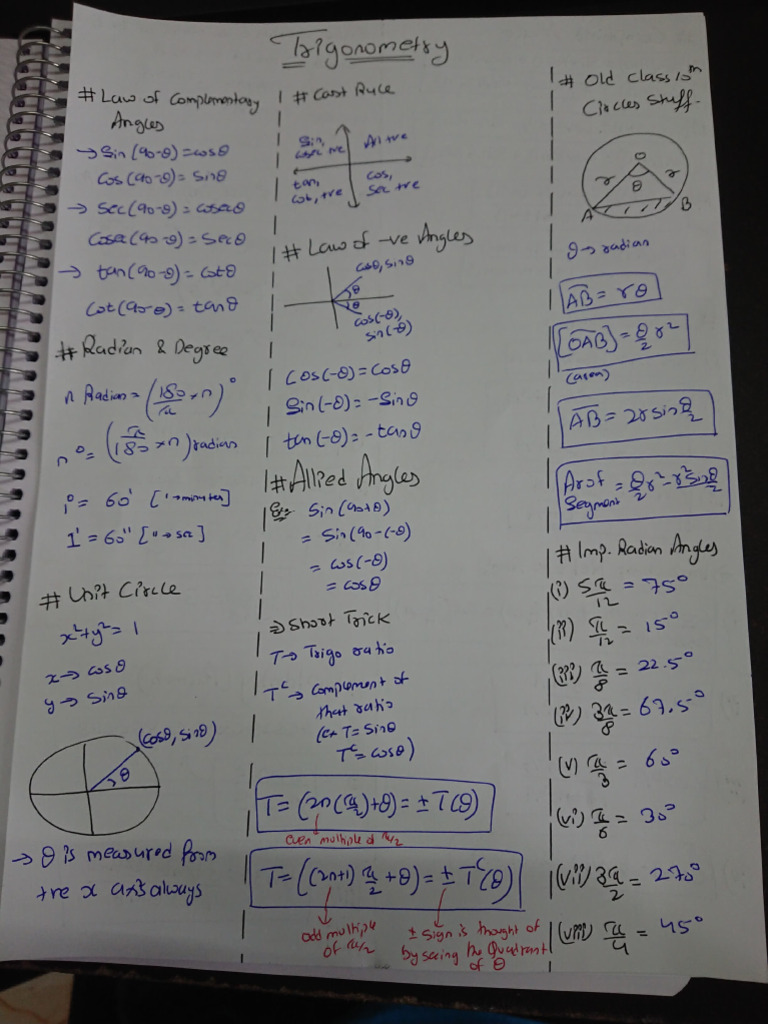 Trigonometry
# Law of Complementary
Angles
→ Sin(90-θ) = cosθ
Cos(90-θ) = Sinθ
→ Sec(90-θ) = cosecθ
Cosec(90-θ) = Secθ
→ tan(90-θ) = cotθ
Cot(90-θ) = tanθ
# Radian & Degree
n Radian = (180/π × n)°
n° = (π/180 × n) radian
1° = 60' ['→minutes]
1' = 60" ["→sec]
# Unit Circle
x²+y² = 1
x → cosθ
y → Sinθ
(cosθ, sinθ)
θ
→ θ is measured from
+ve x axis always
# Cast Rule
Sin, Cosec +ve
All +ve
tan, Cot, +ve
Cos, Sec +ve
# Law of -ve Angles
cosθ, sinθ
θ
θ
cos(-θ),
sin(-θ)
Cos(-θ) = Cosθ
Sin(-θ) = -Sinθ
tan(-θ) = -tanθ
# Allied Angles
Ex: Sin(90+θ)
= Sin(90-(-θ)
= cos(-θ)
= cosθ
⇒ Short Trick
T → Trigo ratio
Tᶜ → Complement of
that ratio
(ex T = Sinθ
Tᶜ = cosθ)
T = (2n(π/2)+θ) = ± T(θ)
even multiple of π/2
T = ((2n+1) π/2 + θ) = ± Tᶜ(θ)
odd multiple
of π/2
± sign is thought of
by seeing the Quadrant
of θ
# Old Class 10th
Circles Stuff.
O
r θ r
A B
θ → radian
AB = rθ
[OAB] = θ/2 r²
(area)
AB = 2r sin θ/2
Ar of Segment = θ/2 r² - r² sinθ/2
# Imp. Radian Angles
(i) 5π/12 = 75°
(ii) π/12 = 15°
(iii) π/8 = 22.5°
(iv) 3π/8 = 67.5°
(v) π/3 = 60°
(vi) π/6 = 30°
(vii) 3π/2 = 270°
(viii) π/4 = 45°